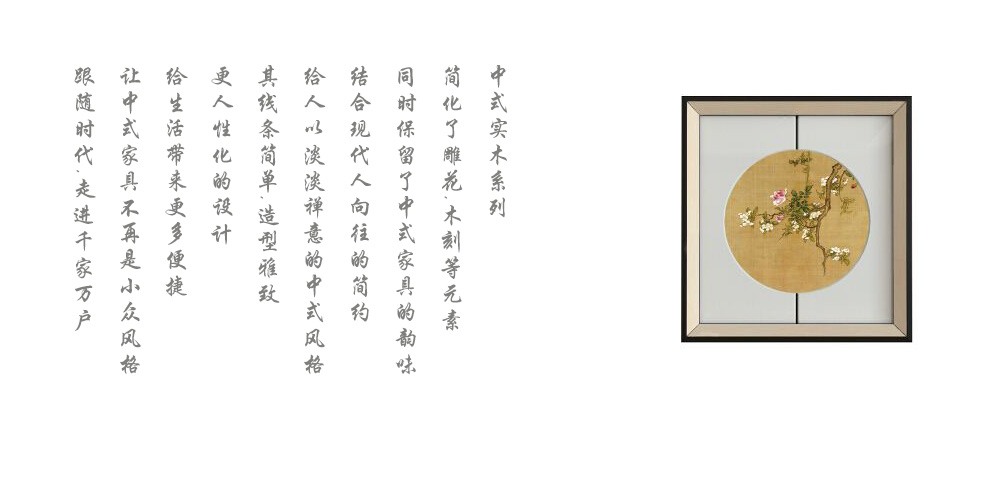 中式实木系列
简化了雕花、木刻等元素
同时保留了中式家具的韵味
结合现代人向往的简约
给人以淡淡禅意的中式风格
其线条简单、造型雅致
更人性化的设计
给生活带来更多便捷
让中式家具不再是小众风格
跟随时代、走进千家万户